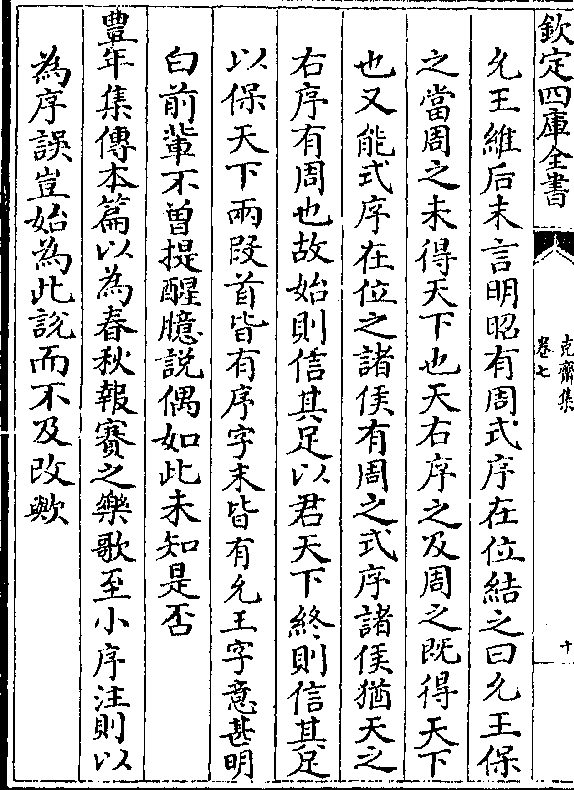 欽定四庫全書
克齋集
卷七
十
允王維后末言明昭有周式序在位結之曰允王保
之當周之未得天下也天右序之及周之既得天下
也又能式序在位之諸侯有周之式序諸侯猶天之
右序有周也故始則信其足以君天下終則信其足
以保天下兩段首皆有序字末皆有允王字意甚明
白前輩不曾提醒臆説偶如此未知是否
豐年集傳本篇以為春秋報賽之樂歌至小序注則以
為序誤豈始為此説而不及改歟